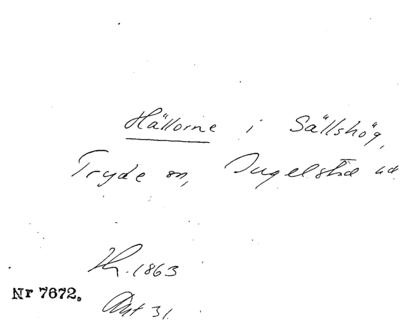 Hällorne i Sällshög,
Tryde sn, Ingelstad hd
1863
Nr 7672.
31.